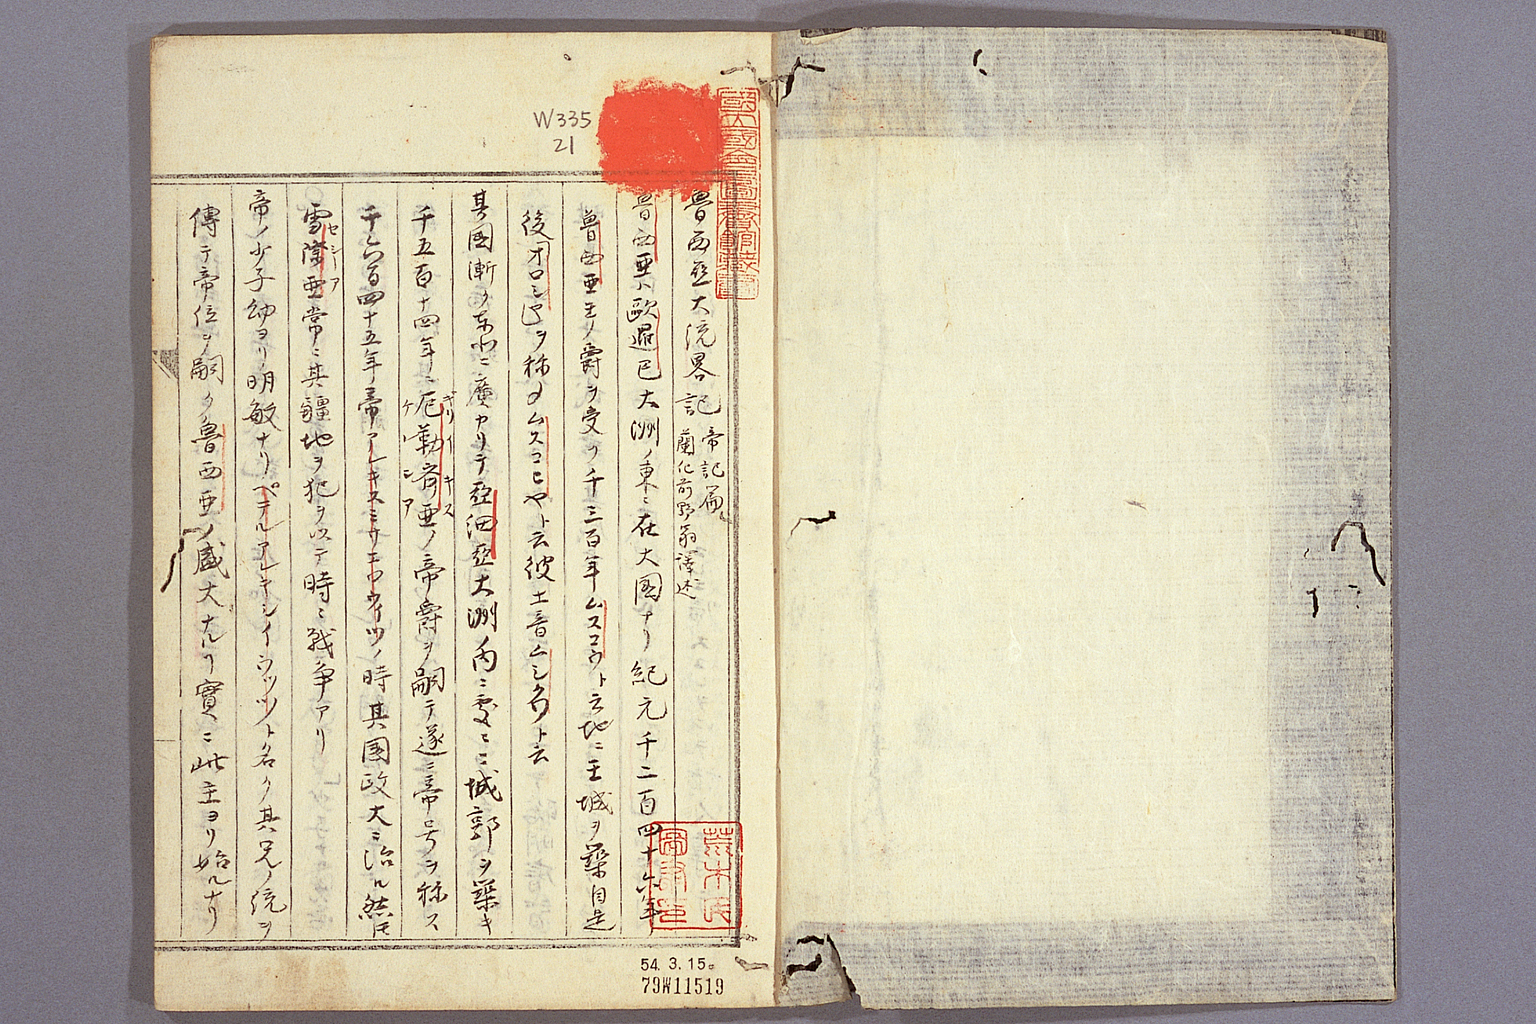 魯西亜大統畧記 帝記篇
蘭化前野翁譯述
魯西亜ハ歐邏巴大洲ノ東ニ在大国ナリ紀元千二百四十六年
魯西亜王ノ爵ヲ受ク千三百年ムスコウト云地ニ王城ヲ築自是
後オロシ ヲ称 ムスコビヤト云彼土音ムシクハト云
其國漸ク東北ニ廣カリテ亞細亞大洲内ニ處々ニ城郭ヲ築キ
千五百十四年ニ厄勒齊亜ノ帝爵ヲ嗣テ遂ニ帝号ヲ称ス
ギリイキス
ケーシア
千六百四十五年ノ帝アレキスミカエウイツノ時其國政大ニ治ル然トモ
雪際亜常ニ其疆地ヲ犯ヲ以テ時ニ戦争アリ
セシア
帝ノ少子幼ヨリ明敏ナリペテルアレキシイウッツト名ク其兄ノ統ヲ
傳テ帝位ヲ嗣ク魯西亜ノ盛大ナルヿ實ニ此主ヨリ始ルナリ
W335
21
國立國會圖書館藏書
荒木氏
54.3.15
79W11519